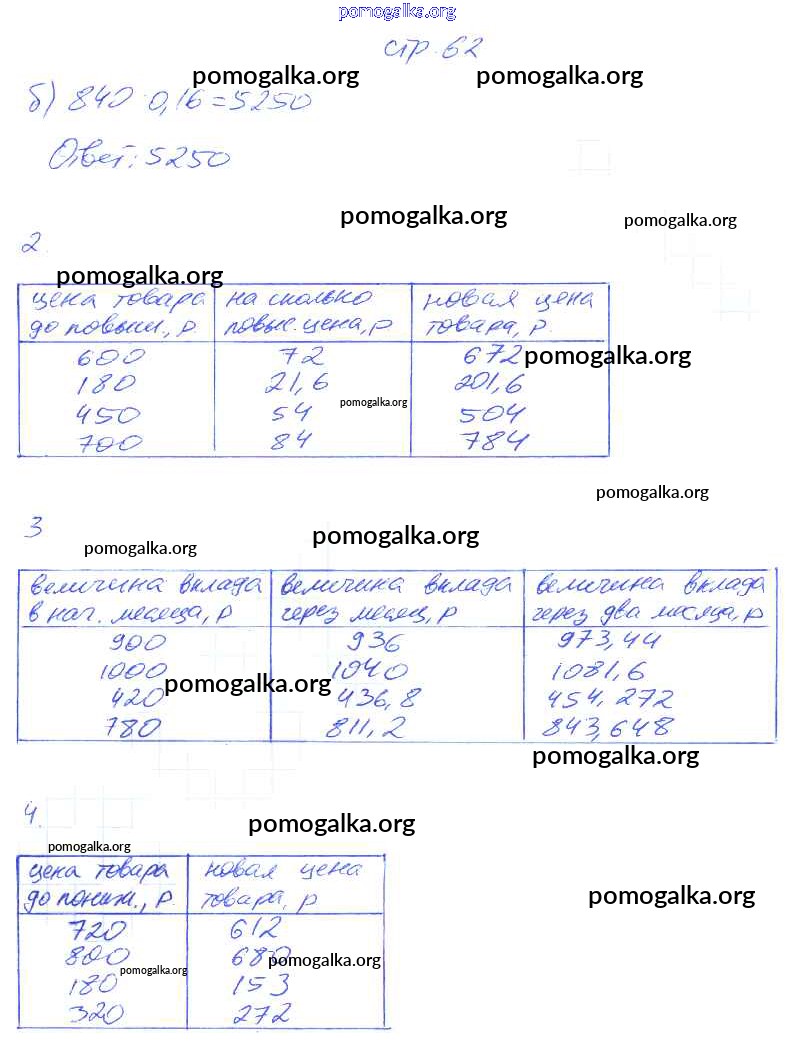 pomogalka.org
стр. 62
pomogalka.org pomogalka.org
б) 840 : 0,16 = 5250
Ответ: 5250
pomogalka.org pomogalka.org
2.
pomogalka.org
цена товара до повыш., р | на сколько повыс. цена, р | новая цена товара, р.
600 72 672 pomogalka.org
180 21,6 201,6
pomogalka.org
450 54 504
700 84 784
pomogalka.org
3
pomogalka.org pomogalka.org
величина вклада в нач. месяца, р | величина вклада через месяц, р | величина вклада через два месяца, р
900 936 973,44
1000 1040 1081,6
pomogalka.org
420 436,8 454,272
780 811,2 843,648
pomogalka.org
4.
pomogalka.org
pomogalka.org
цена товара до пониж., р. | новая цена товара, р
pomogalka.org
720 612
800 680 pomogalka.org
pomogalka.org
180 153
320 272
pomogalka.org